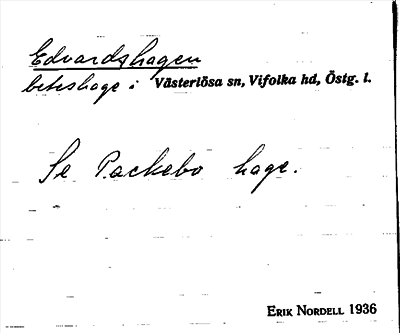 Edvardshagen
beteshage i Västerlösa sn, Vifolka hd, Östg. l.
Se Packebo hage.
ERIK NORDELL 1936